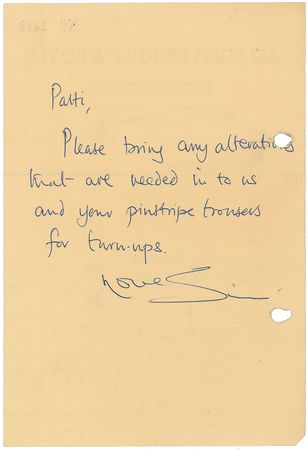 Patti,
Please bring any alterations
that are needed in to us
and your pinstripe trousers
for turn-ups.
love